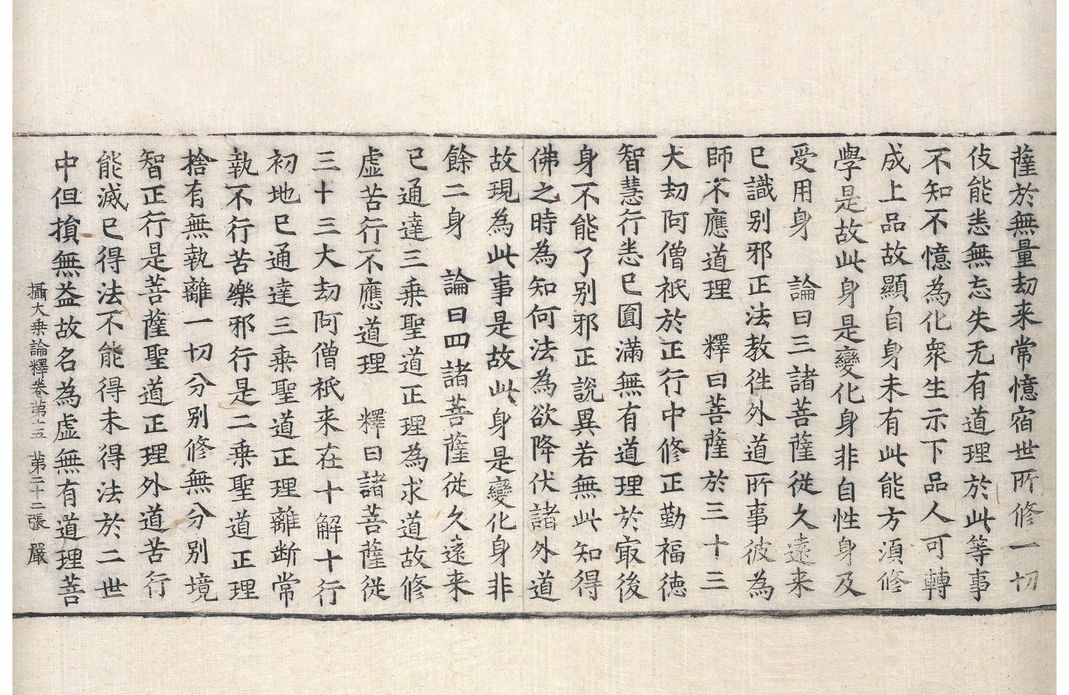 薩於無量劫来常憶宿世所修一切
伎能悉無忘失无有道理於此等事
不知不憶為化衆生示下品人可轉
成上品故顯自身未有此能方須修
學是故此身是變化身非自性身及
受用身　論曰三諸菩薩從久遠来
已識别邪正法教徃外道所事彼為
師不應道理　釋曰菩薩於三十三
大劫阿僧祇於正行中修正勤福徳
智慧行悉已圓滿無有道理於㝡後
身不能了别邪正說異若無此知得
佛之時為知何法為欲降伏諸外道
故現為此事是故此身是變化身非
餘二身　論曰四諸菩薩従久遠来
已通達三乗聖道正理為求道故修
虚苦行不應道理　釋曰諸菩薩從
三十三大劫阿僧祇来在十解十行
初地已通達三乗聖道正理離断常
執不行苦樂邪行是二乗聖道正理
捨有無執離一切分别修無分别境
智正行是菩薩聖道正理外道苦行
能滅已得法不能得未得法於二世
中但損無益故名為虚無有道理菩
攝大乗論釋卷第十五　第二十二張　嚴